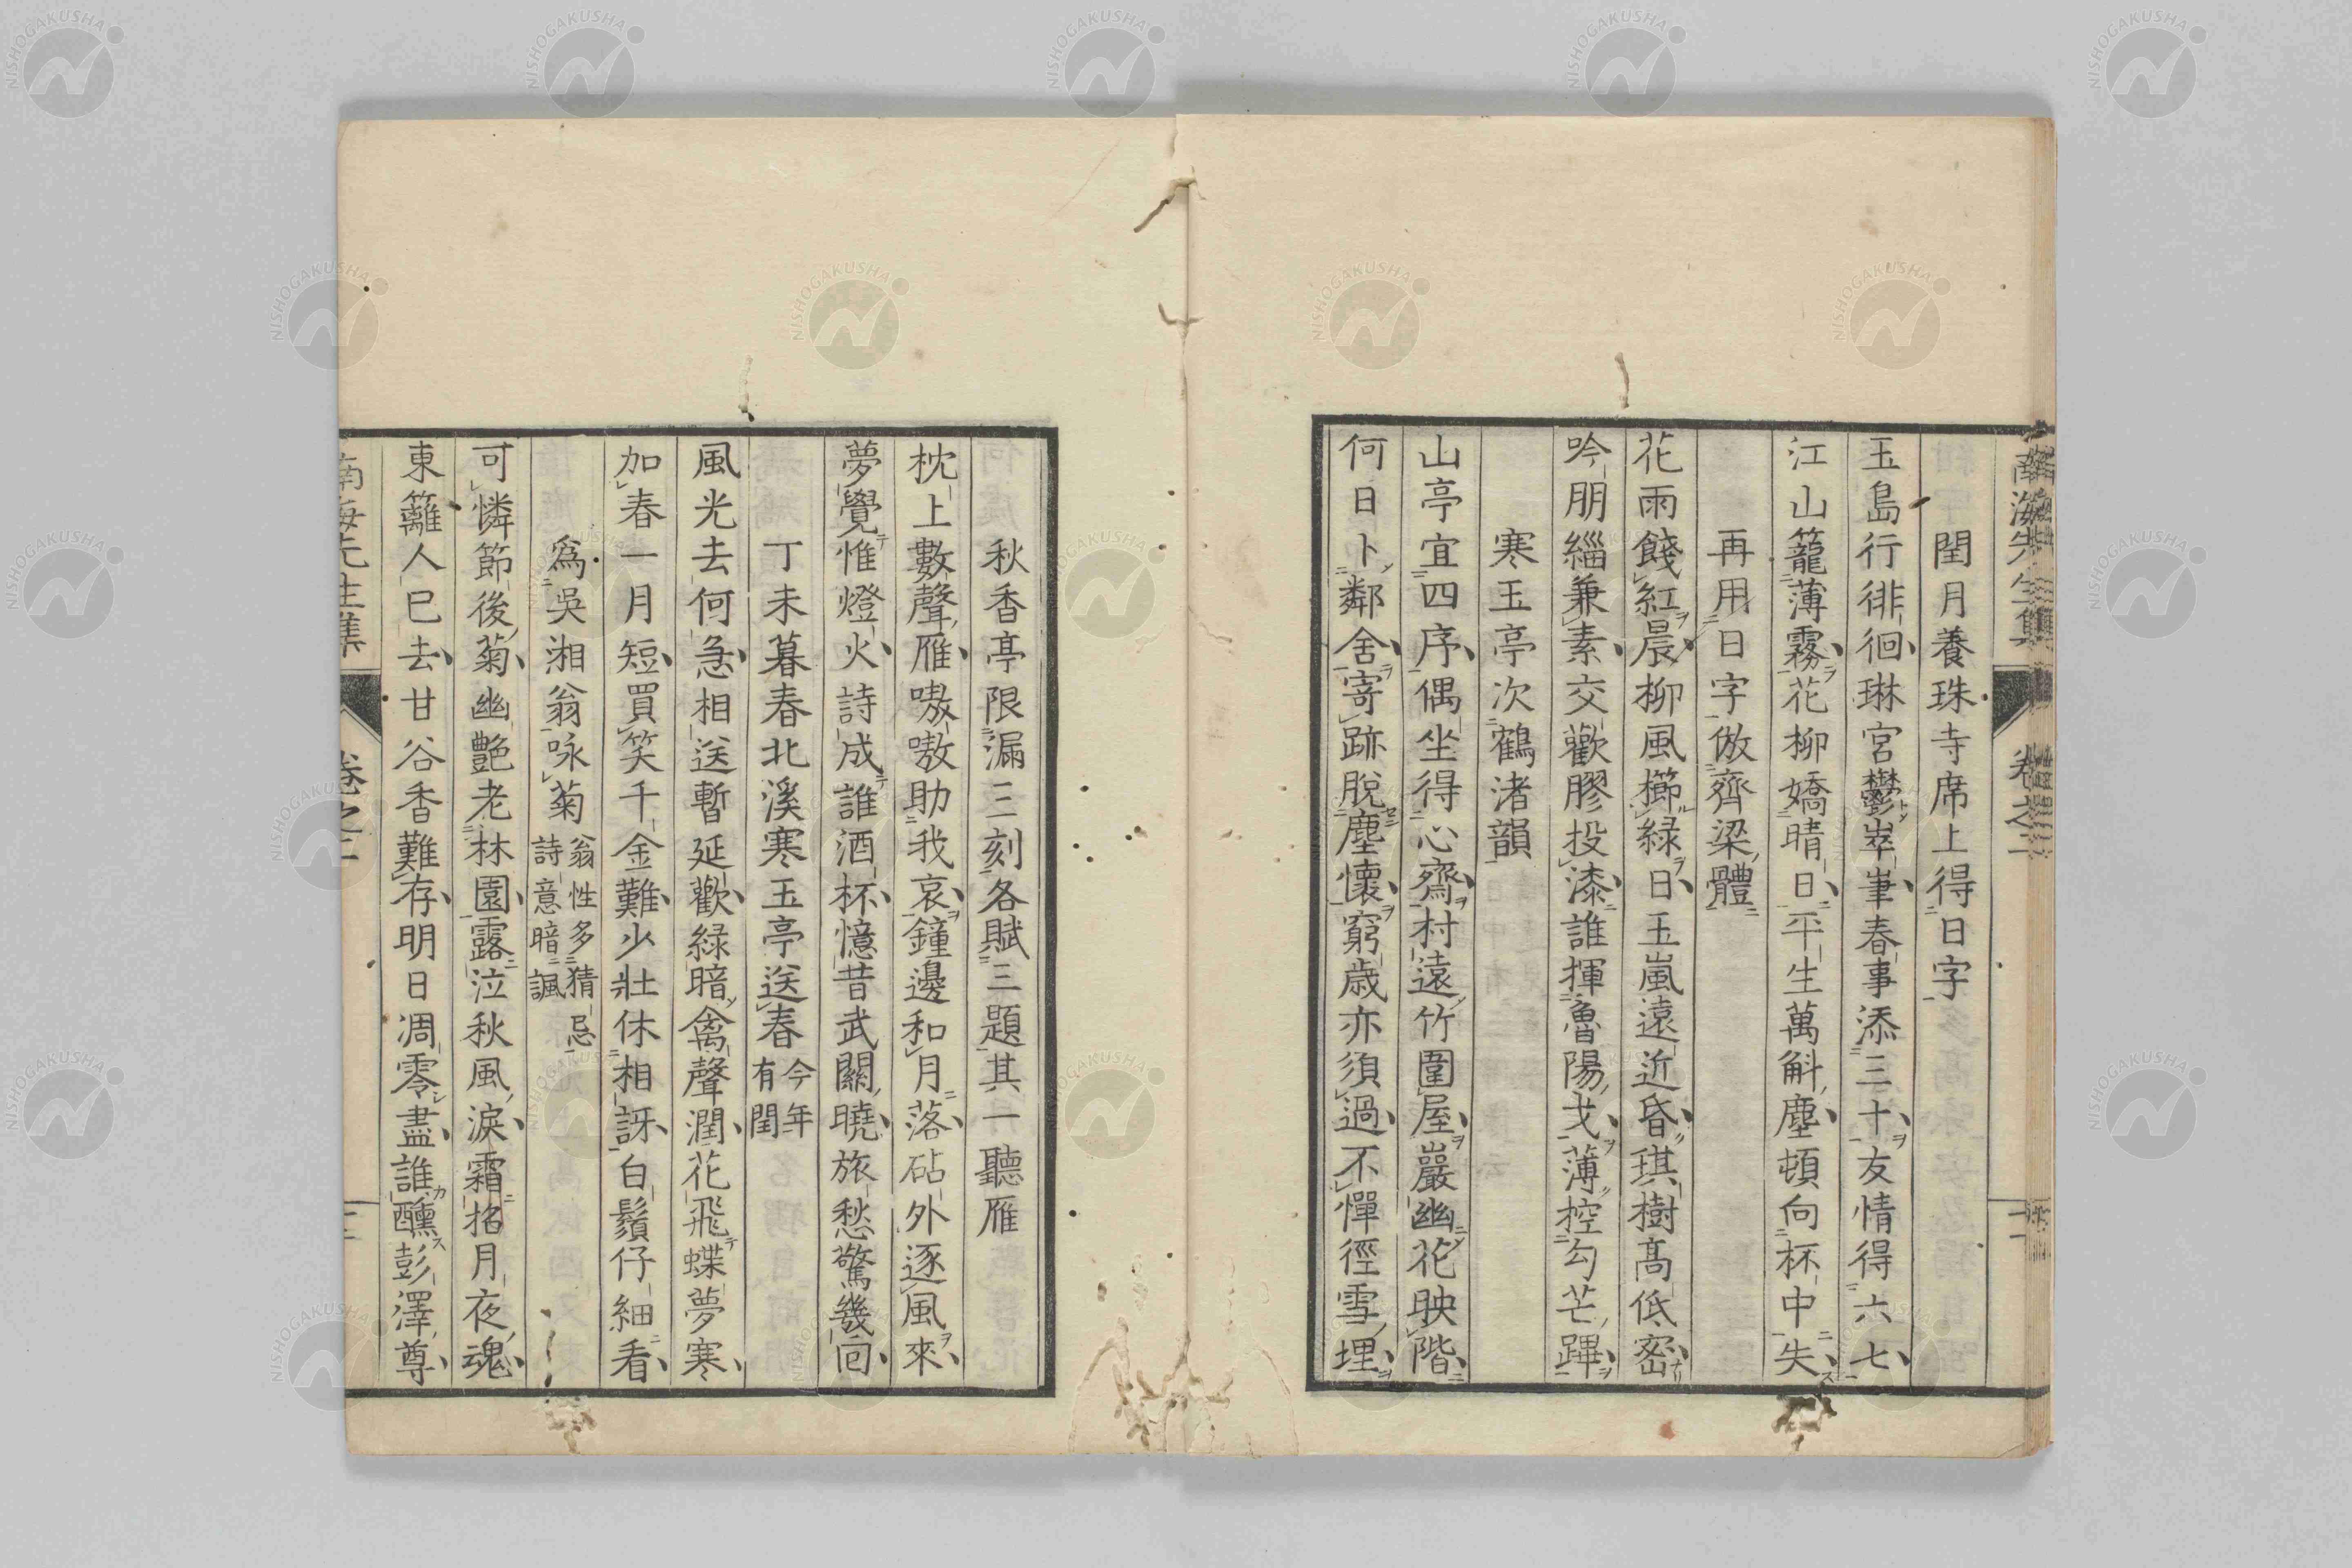 南海先生集 卷之二
閏月養珠寺席上得日字
玉島行徘徊琳宮鬱崒崋春事添三十友情得六七
江山籠薄霧花柳嬌晴日平生萬斛塵頓向杯中失
再用日字倣齊梁體
花雨餞紅晨柳風櫛綠日玉嵐遠近昏琪樹高低密
吟朋緇兼素交歡膠投漆誰揮魯陽戈薄控勾芒蹕
寒玉亭次鶴渚韻
山亭宜四序偶坐得心齋村遠竹圍屋巖幽花映階
何日卜鄰舍寄跡脫塵懷窮歲亦須過不憚徑雪埋
秋香亭限漏三刻各賦三題其一聽雁
枕上數聲雁嗷嗷助我哀鐘邊和月落砧外逐風來
夢覺惟燈火詩成誰酒杯憶昔武關曉旅愁驚幾回
丁未暮春北溪寒玉亭送春今年有閏
風光去何急相送暫延歡綠暗禽聲潤花飛蝶夢寒
加春一月短買笑千金難少壯休相訝白鬚仔細看
爲吳湘翁咏菊翁性多猜忌詩意暗諷
可憐節後菊幽艷老林園露泣秋風淚霜招月夜魂
東籬人已去甘谷香難存明日凋零盡誰醺彭澤尊
南海先生集 卷之二